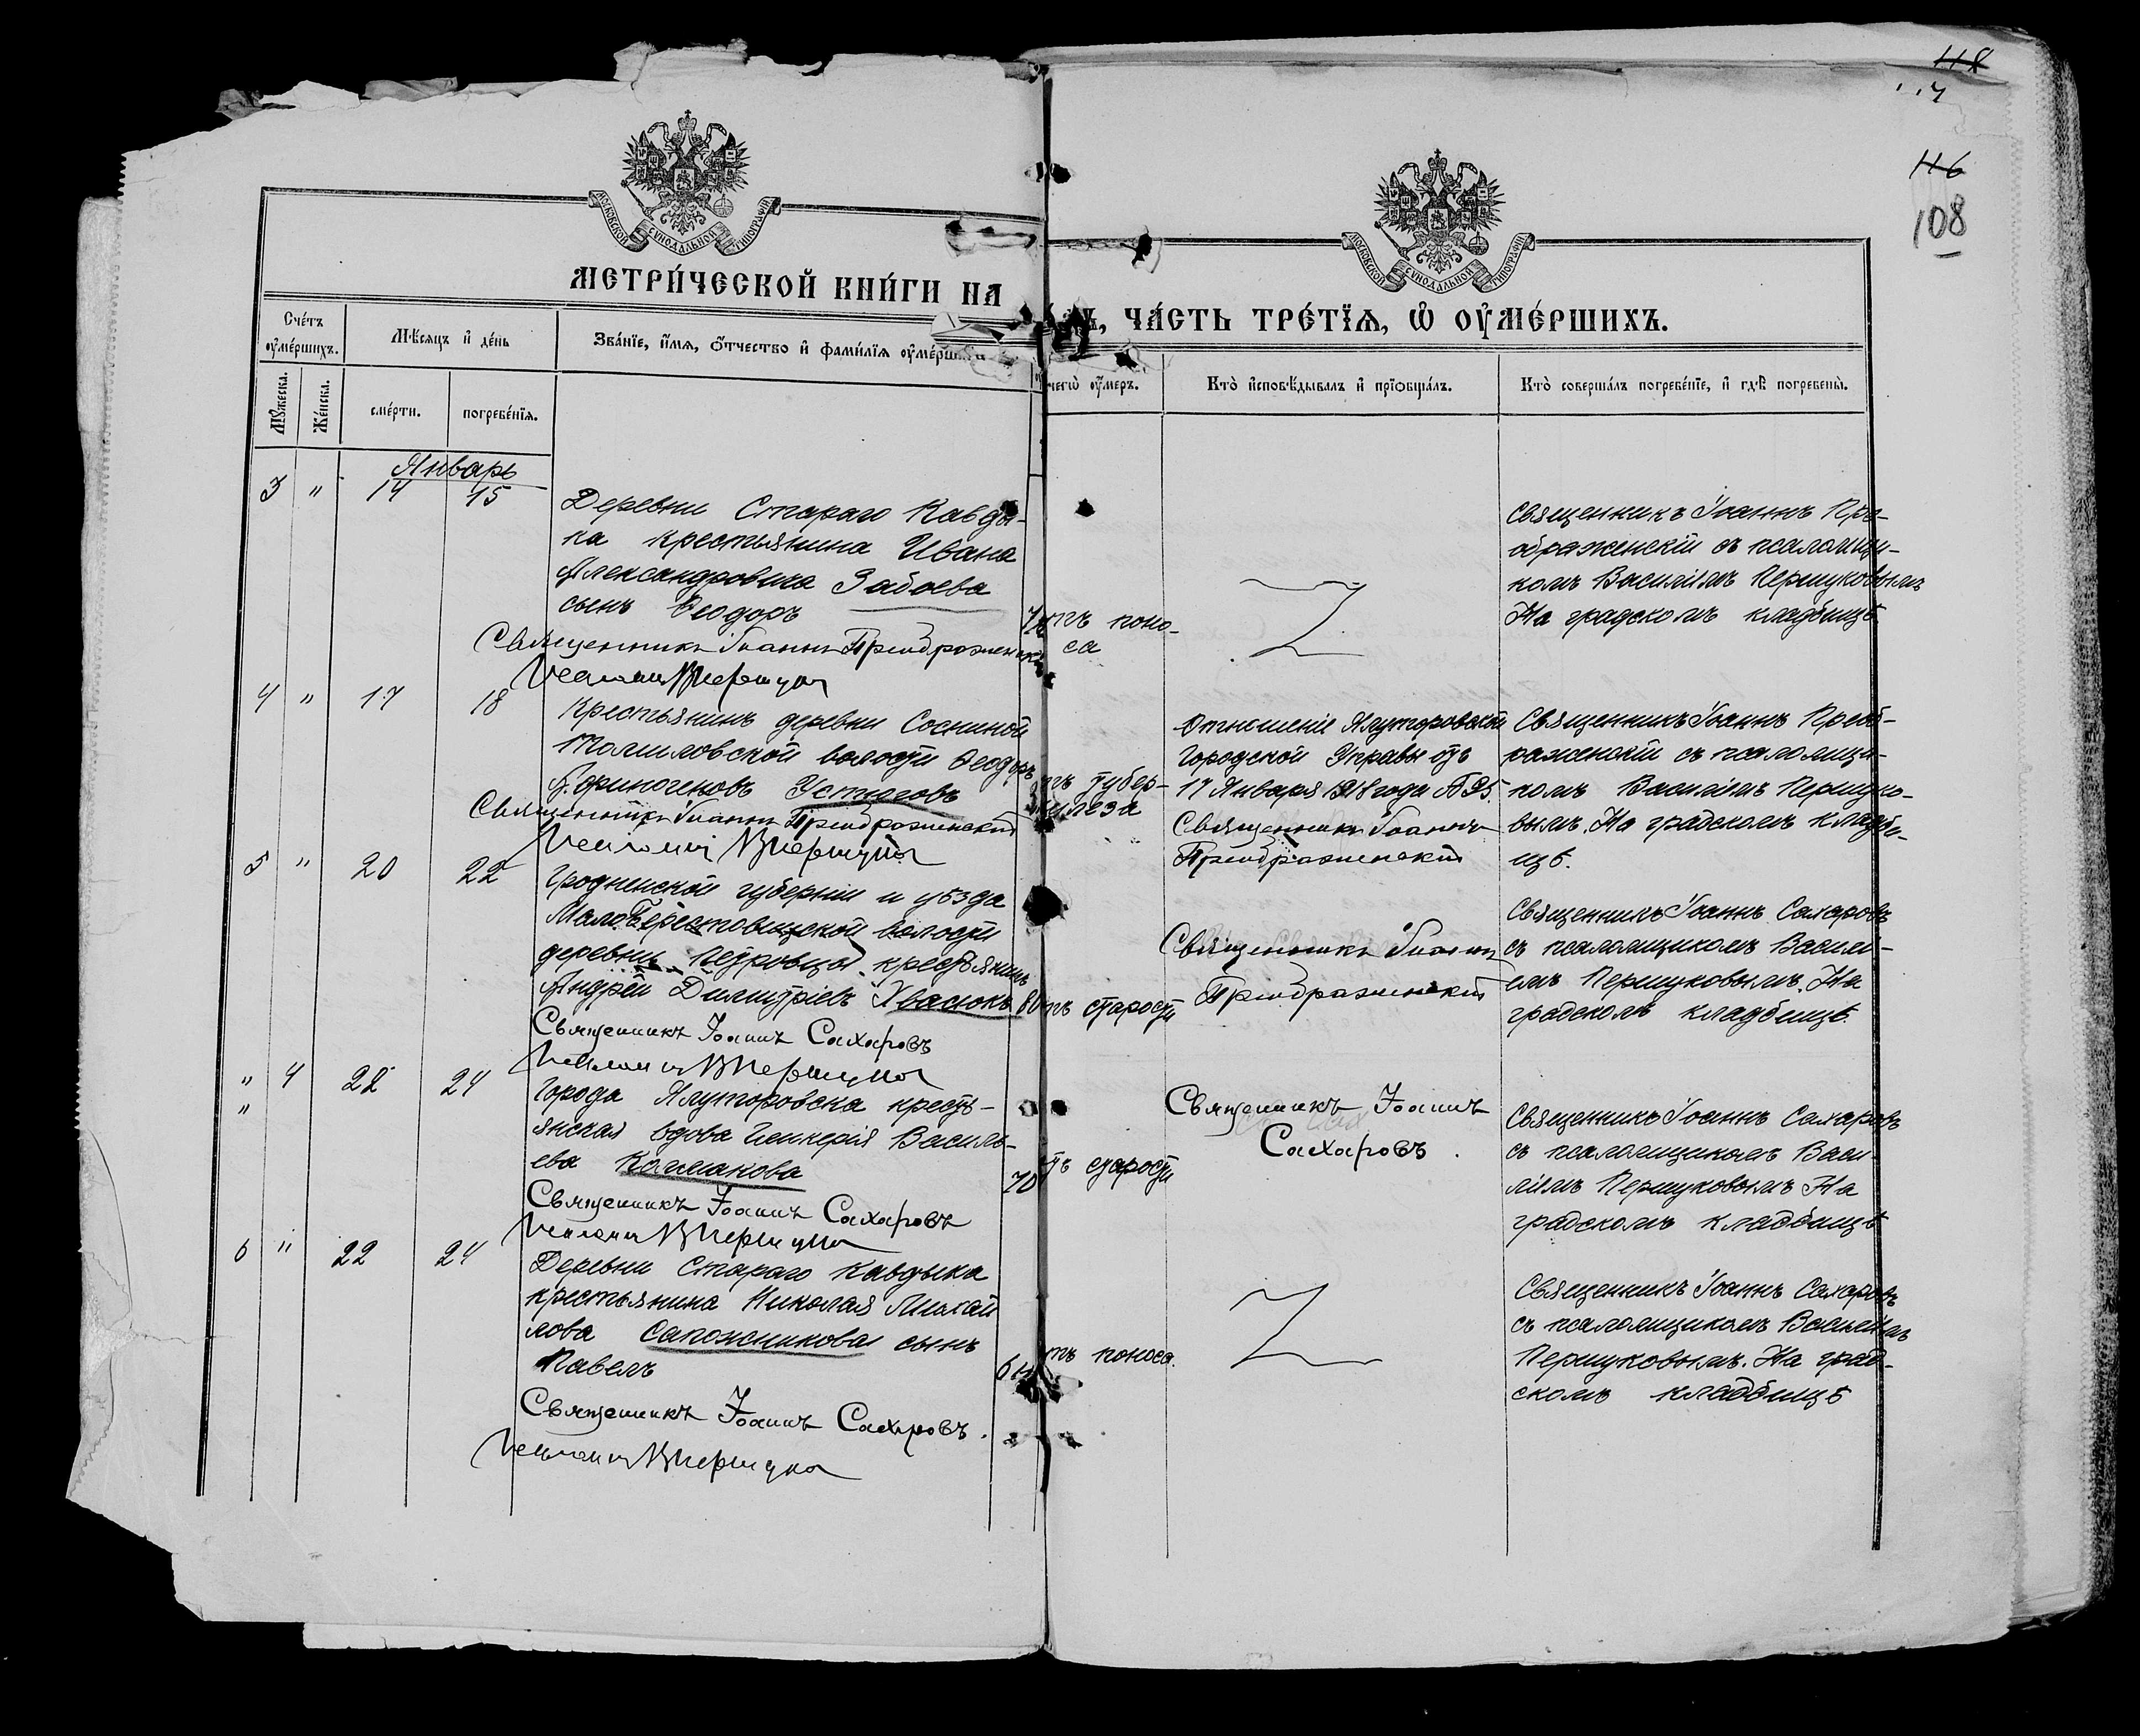 118
116
108
МОСКОВСКОЙ СѴНОДАЛЬНОЙ ТИПОГРАФІИ
МОСКОВСКОЙ СѴНОДАЛЬНОЙ ТИПОГРАФІИ
МЕТРИ́ЧЕСКОЙ КНИ́ГИ НА
ЧА́СТЬ ТРЕ́ТЇѦ, Ѽ ОУ҆МЕ́РШИХЪ.
Сче́тъ оу҆ме́ршихъ.
Мѣ́сяцъ и҆ де́нь
Зва́нїе, и҆́мѧ, ѻ҆́тчество и҆ фами́лїѧ оу҆ме́ршагѡ
чегѡ̀ оу҆́меръ.
Кто̀ и҆сповѣ́дывалъ и҆ прїѡбща́лъ.
Кто̀ соверша́лъ погребе́нїе, и҆ гдѣ̀ погребены̀.
Мꙋ́жеска.
Же́нска.
сме́рти.
погребе́нїѧ.
Январь
3 " 14 15
Деревни Стараго Кавды-
ка крестьянина Ивана
Александровича Забоева
сынъ Ѳеодоръ
Священникъ Іоаннъ Преображенскій
поно-
са
Священникъ Іоаннъ Пре-
ображенскій съ псаломщи-
комъ Василіемъ Першуковымъ
На градскомъ кладбищѣ
4 " 17 18
Крестьянинъ деревни Сосниной
Томиловской волости Ѳеодоръ
Афиногеновъ Устюговъ
Священникъ Іоаннъ Преображенскій
тубер-
кулеза
Отношеніе Ялуторовской
Городской Управы отъ
17 Января 1918 года № 95.
Священникъ Іоаннъ
Преображенскій
Священникъ Іоаннъ Преоб-
раженскій съ псаломщи-
комъ Василіемъ Першуко-
вымъ. На градскомъ кладби-
щѣ.
5 " 20 22
Гродненской губерніи и уѣзда
Мало Берестовицкой волости
деревни Петровцы крестьянинъ
Андрей Димитріевъ Хвасюкъ 80
Священникъ Іоаннъ Сахаровъ
старости
Священникъ Іоаннъ
Преображенскій
Священникъ Іоаннъ Сахаровъ
съ псаломщикомъ Васили-
емъ Першуковымъ. На
градскомъ кладбищѣ.
" 4 22 24
"
Города Ялуторовска кресть-
янская вдова Гликерія Василь-
ева Колмакова 70
Священникъ Іоаннъ Сахаровъ
старости
Священникъ Іоаннъ
Сахаровъ.
Священникъ Іоаннъ Сахаровъ
съ псаломщикомъ Васи-
ліемъ Першуковымъ На
градскомъ кладбищѣ
6 " 22 24
Деревни Стараго Кавдыка
крестьянина Николая Михай
лова Сапожникова сынъ
Павелъ
Священникъ Іоаннъ Сахаровъ.
поноса.
Священникъ Іоаннъ Сахаровъ
съ псаломщикомъ Василіемъ
Першуковымъ. На град-
скомъ кладбищѣ